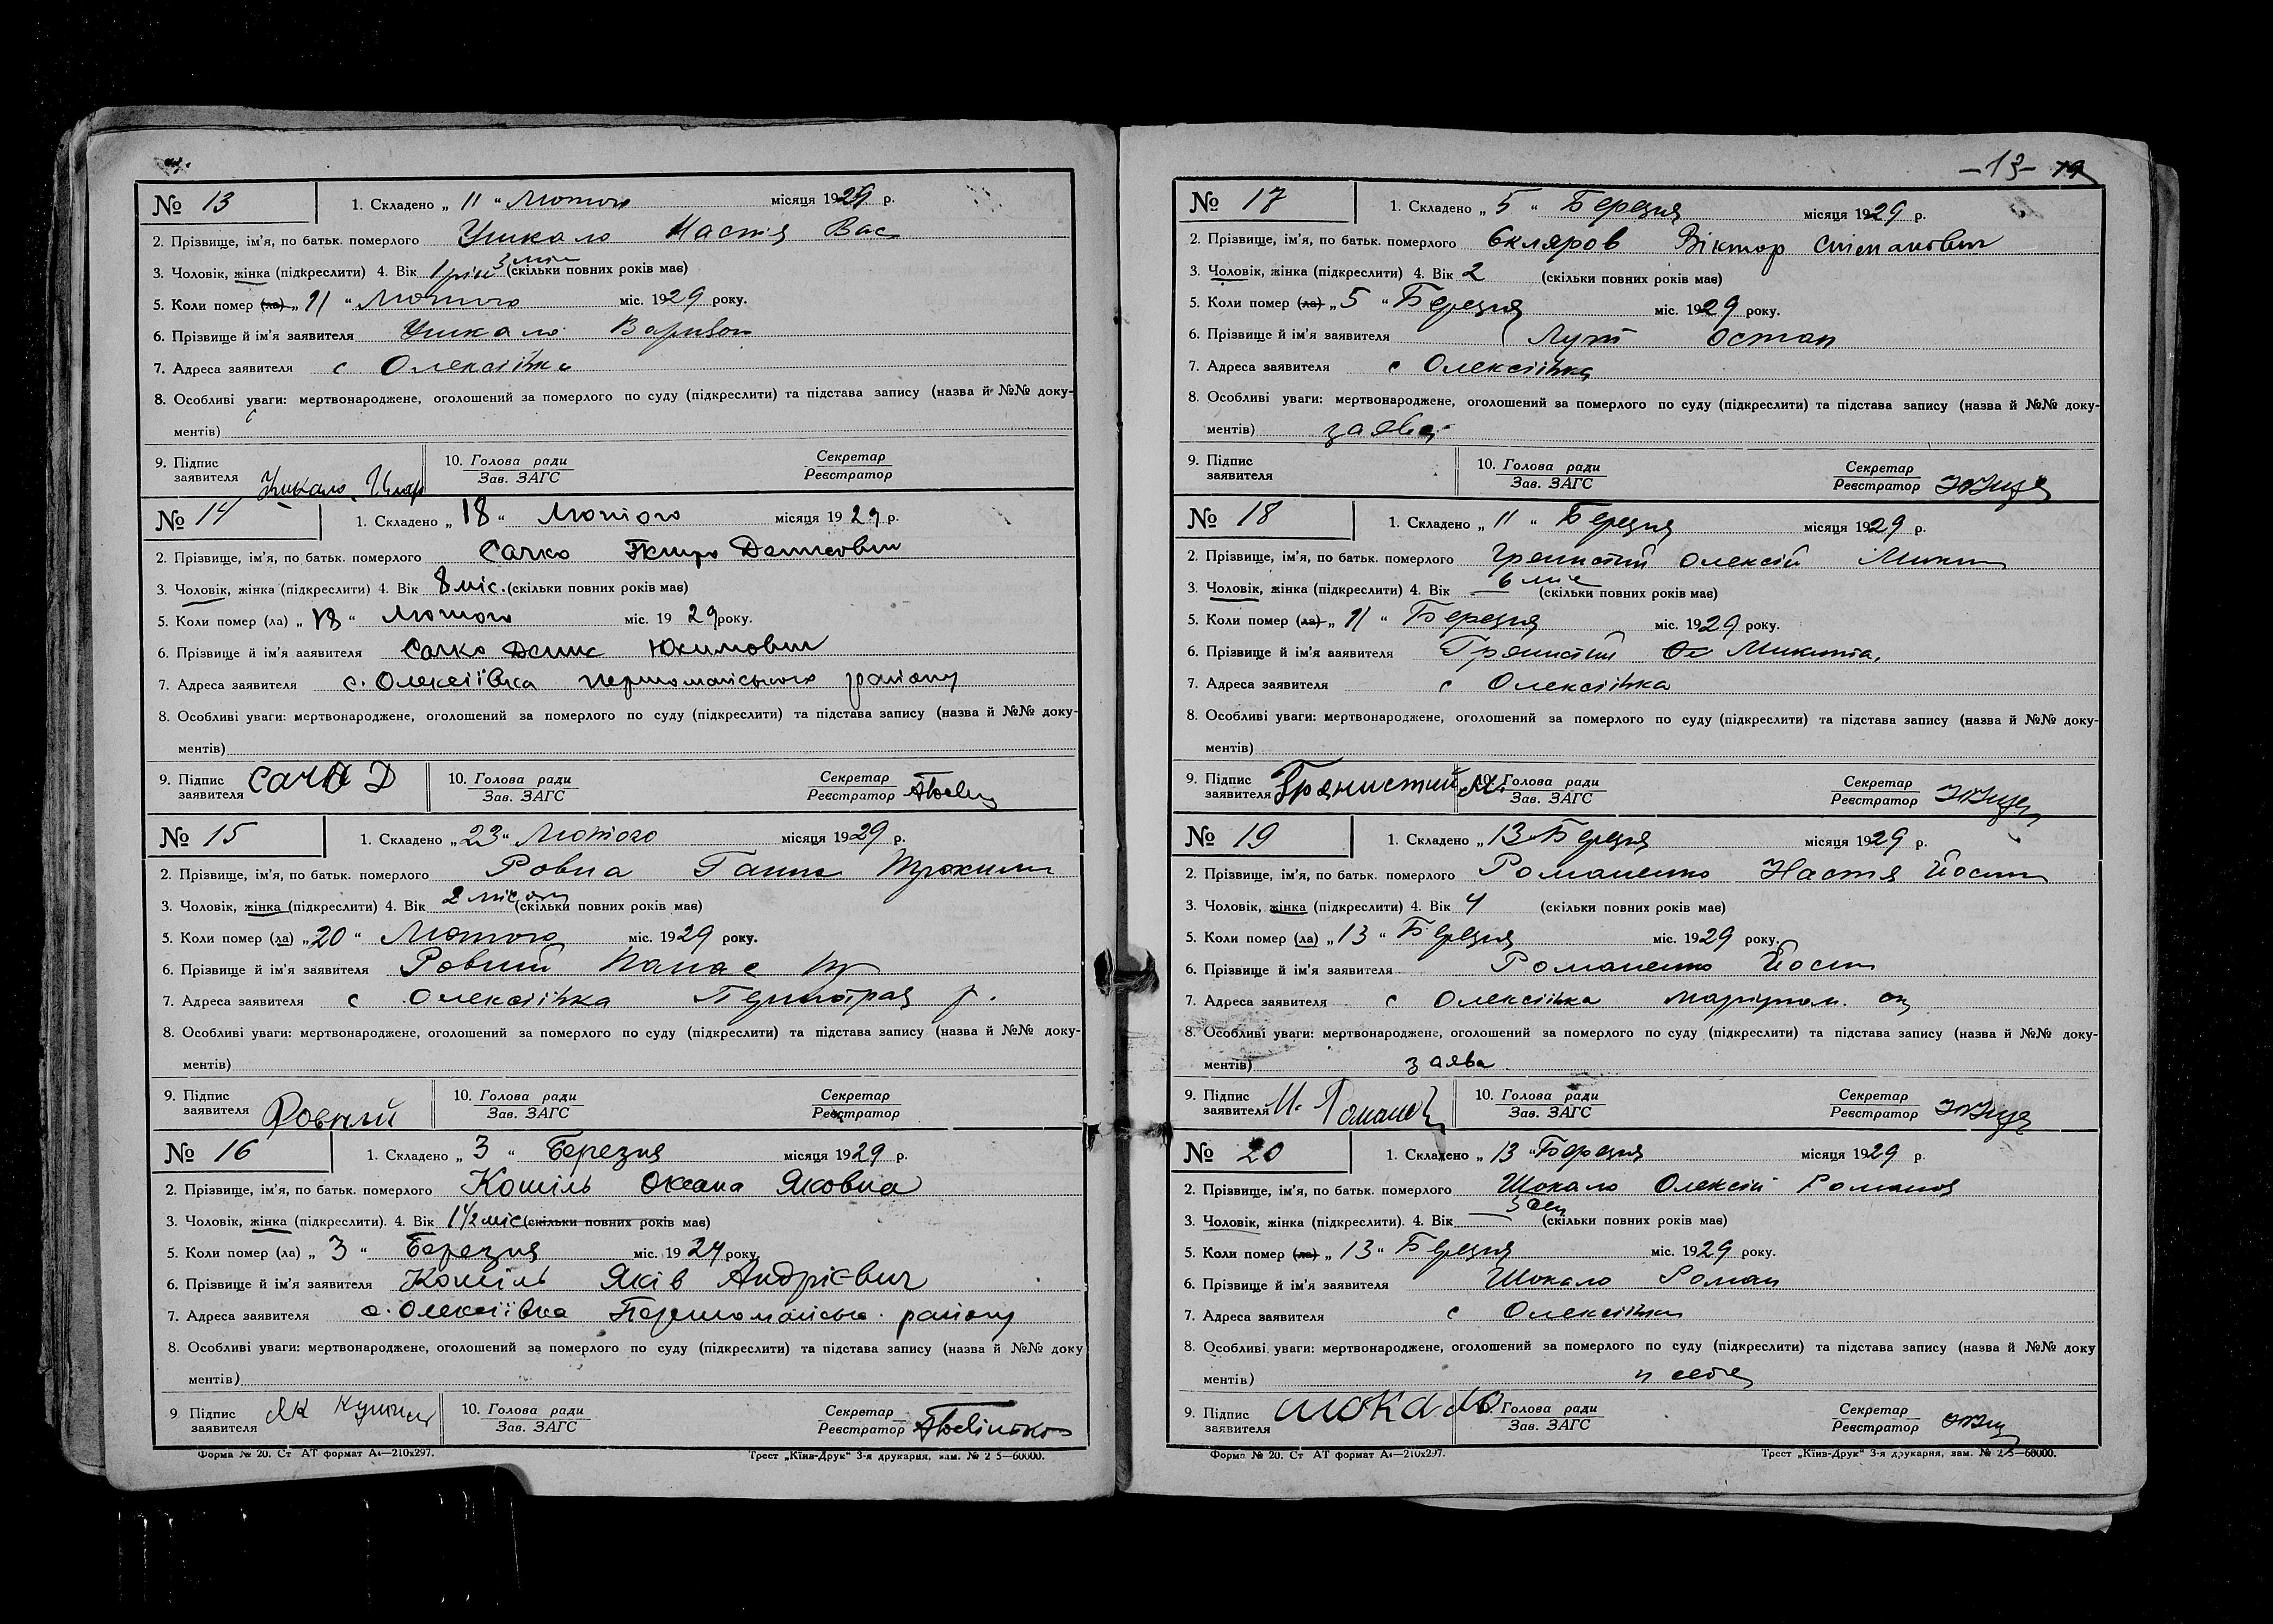 № 13
1. Складено „ 11 “ Лютого місяця 1929 р.
2. Прізвище, ім’я, по батьк. померлого Чикало Настя Вас
3. Чоловік, жінка (підкреслити) 4. Вік 1 рік 3 міс (скільки повних років має)
5. Коли помер (ла) „ 11 “ Лютого міс. 1929 року.
6. Прізвище й ім’я заявителя Чикало
7. Адреса заявителя с Олексіївка
8. Особливі уваги: мертвонароджене, оголошений за померлого по суду (підкреслити) та підстава запису (назва й №№ доку-
ментів)
9. Підпис заявителя Чикало 10. Голова ради Зав. ЗАГС Секретар Реєстратор
№ 14
1. Складено „ 18 “ Лютого місяця 1929 р.
2. Прізвище, ім’я, по батьк. померлого Сачко Денисович
3. Чоловік, жінка (підкреслити) 4. Вік 8 міс. (скільки повних років має)
5. Коли помер (ла) „ 18 “ Лютого міс. 1929 року.
6. Прізвище й ім’я заявителя Сачко Денис Юхимович
7. Адреса заявителя с. Олексіївка Першомайського району
8. Особливі уваги: мертвонароджене, оголошений за померлого по суду (підкреслити) та підстава запису (назва й №№ доку-
ментів)
9. Підпис заявителя Сачко Д 10. Голова ради Зав. ЗАГС Секретар Реєстратор
№ 15
1. Складено „ 23 “ Лютого місяця 1929 р.
2. Прізвище, ім’я, по батьк. померлого Ровна Ганна
3. Чоловік, жінка (підкреслити) 4. Вік 2 міс (скільки повних років має)
5. Коли помер (ла) „ 20 “ Лютого міс. 1929 року.
6. Прізвище й ім’я заявителя Ровний Панас
7. Адреса заявителя с Олексіївка р.
8. Особливі уваги: мертвонароджене, оголошений за померлого по суду (підкреслити) та підстава запису (назва й №№ доку-
ментів)
9. Підпис заявителя Ровный 10. Голова ради Зав. ЗАГС Секретар Реєстратор
№ 16
1. Складено „ 3 “ Березня місяця 1929 р.
2. Прізвище, ім’я, по батьк. померлого Кошіль Оксана Яковна
3. Чоловік, жінка (підкреслити). 4. Вік 1 1/2 міс (скільки повних років має)
5. Коли помер (ла) „ 3 “ Березня міс. 1929 року
6. Прізвище й ім’я заявителя Кошіль Яків Андрієвич
7. Адреса заявителя с. Олексіївка Першомайсько. району
8. Особливі уваги: мертвонароджене, оголошений за померлого по суду (підкреслити) та підстава запису (назва й №№ доку
ментів)
9 Підпис заявителя Як 10. Голова ради Зав. ЗАГС Секретар Реєстратор
Форма № 20. Ст АТ формат А4—210x297. Трест „Київ-Друк“ 3-я друкарня, зам. № 2 5—60000.
–13–
№ 17
1. Складено „ 5 “ Березня місяця 1929 р.
2. Прізвище, ім’я, по батьк. померлого Скляров Віктор Степанович
3. Чоловік, жінка (підкреслити) 4. Вік 2 (скільки повних років має)
5. Коли помер (ла) „ 5 “ Березня міс. 1929 року.
6. Прізвище й ім’я заявителя Лут Остап
7. Адреса заявителя с Олексіївка
8. Особливі уваги: мертвонароджене, оголошений за померлого по суду (підкреслити) та підстава запису (назва й №№ доку-
ментів) заява
9. Підпис заявителя 10. Голова ради Зав. ЗАГС Секретар Реєстратор
№ 18
1. Складено „ 11 “ Березня місяця 1929 р.
2. Прізвище, ім’я, по батьк. померлого Гранистий Олексій Микит
3. Чоловік, жінка (підкреслити) 4. Вік 6 міс (скільки повних років має)
5. Коли помер (ла) „ 11 “ Березня міс. 1929 року.
6. Прізвище й ім’я заявителя Гранистий Микита.
7. Адреса заявителя с Олексіївка
8. Особливі уваги: мертвонароджене, оголошений за померлого по суду (підкреслити) та підстава запису (назва й №№ доку-
ментів)
9. Підпис заявителя Гранистий М. 10. Голова ради Зав. ЗАГС Секретар Реєстратор
№ 19
1. Складено „ 13 Березня місяця 1929 р.
2. Прізвище, ім’я, по батьк. померлого Романенко Настя Йосип
3. Чоловік, жінка (підкреслити) 4. Вік 4 (скільки повних років має)
5. Коли помер (ла) „ 13 “ Березня міс. 1929 року.
6. Прізвище й ім’я заявителя Романенко Йосип
7. Адреса заявителя с Олексіївка
8. Особливі уваги: мертвонароджене, оголошений за померлого по суду (підкреслити) та підстава запису (назва й №№ доку-
ментів) заява
9. Підпис заявителя 10. Голова ради Зав. ЗАГС Секретар Реєстратор
№ 20
1. Складено „ 13 “ Березня місяця 1929 р.
2. Прізвище, ім’я, по батьк. померлого Шокало Олексій Романов
3. Чоловік, жінка (підкреслити). 4. Вік (скільки повних років має)
5. Коли помер (ла) „ 13 “ Березня міс. 1929 року.
6. Прізвище й ім’я заявителя Шокало Роман
7. Адреса заявителя с Олексіївка
8. Особливі уваги: мертвонароджене, оголошений за померлого по суду (підкреслити) та підстава запису (назва й №№ доку
ментів)
9. Підпис заявителя шокало 10. Голова ради Зав. ЗАГС Секретар Реєстратор
Форма № 20. Ст АТ формат А4—210x297. Трест „Київ-Друк“ 3-я друкарня, зам. № 2 5—60000.